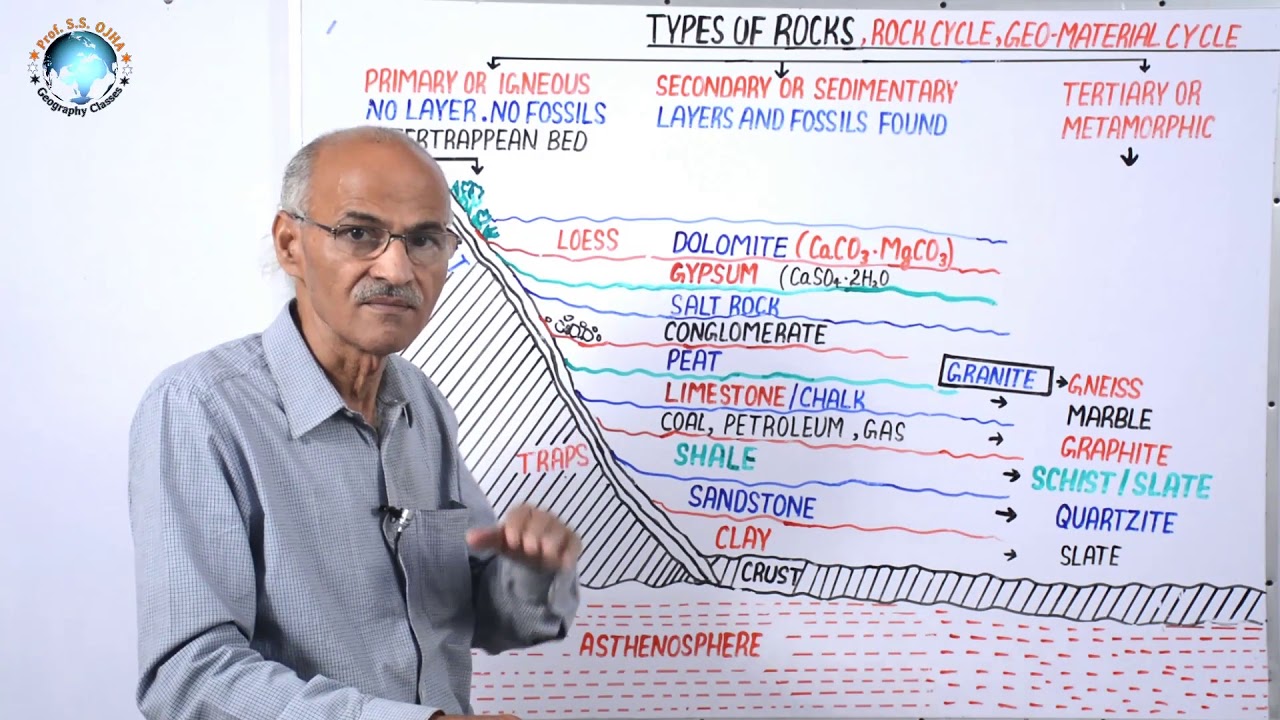 Prof. S.S. OJHA
Geography Classes
TYPES OF ROCKS, ROCK CYCLE, GEO-MATERIAL CYCLE
PRIMARY OR IGNEOUS
NO LAYER. NO FOSSILS
BED
SECONDARY OR SEDIMENTARY
LAYERS AND FOSSILS FOUND
TERTIARY OR
METAMORPHIC
LOESS
DOLOMITE (CaCO3·MgCO3)
GYPSUM (CaSO4·2H2O
SALT ROCK
CONGLOMERATE
PEAT
GRANITE → GNEISS
LIMESTONE/CHALK → MARBLE
COAL, PETROLEUM, GAS → GRAPHITE
TRAPS
SHALE → SCHIST/SLATE
SANDSTONE → QUARTZITE
CLAY → SLATE
CRUST
ASTHENOSPHERE